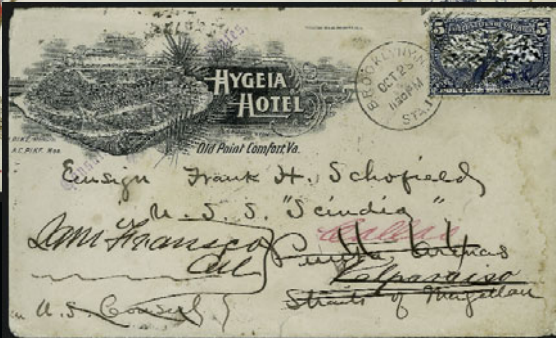 HYGEIA
HOTEL
Old Point Comfort, Va.
BROOKLYN, N.Y.
OCT 2
PM
STA.
5 5
Ensign Frank H. Schofield
U. S. S. "Scindia"
San Fransisco
Cal
Callao
Punta Arenas
Valparaiso
Straits of Magellan
U.S. Consul